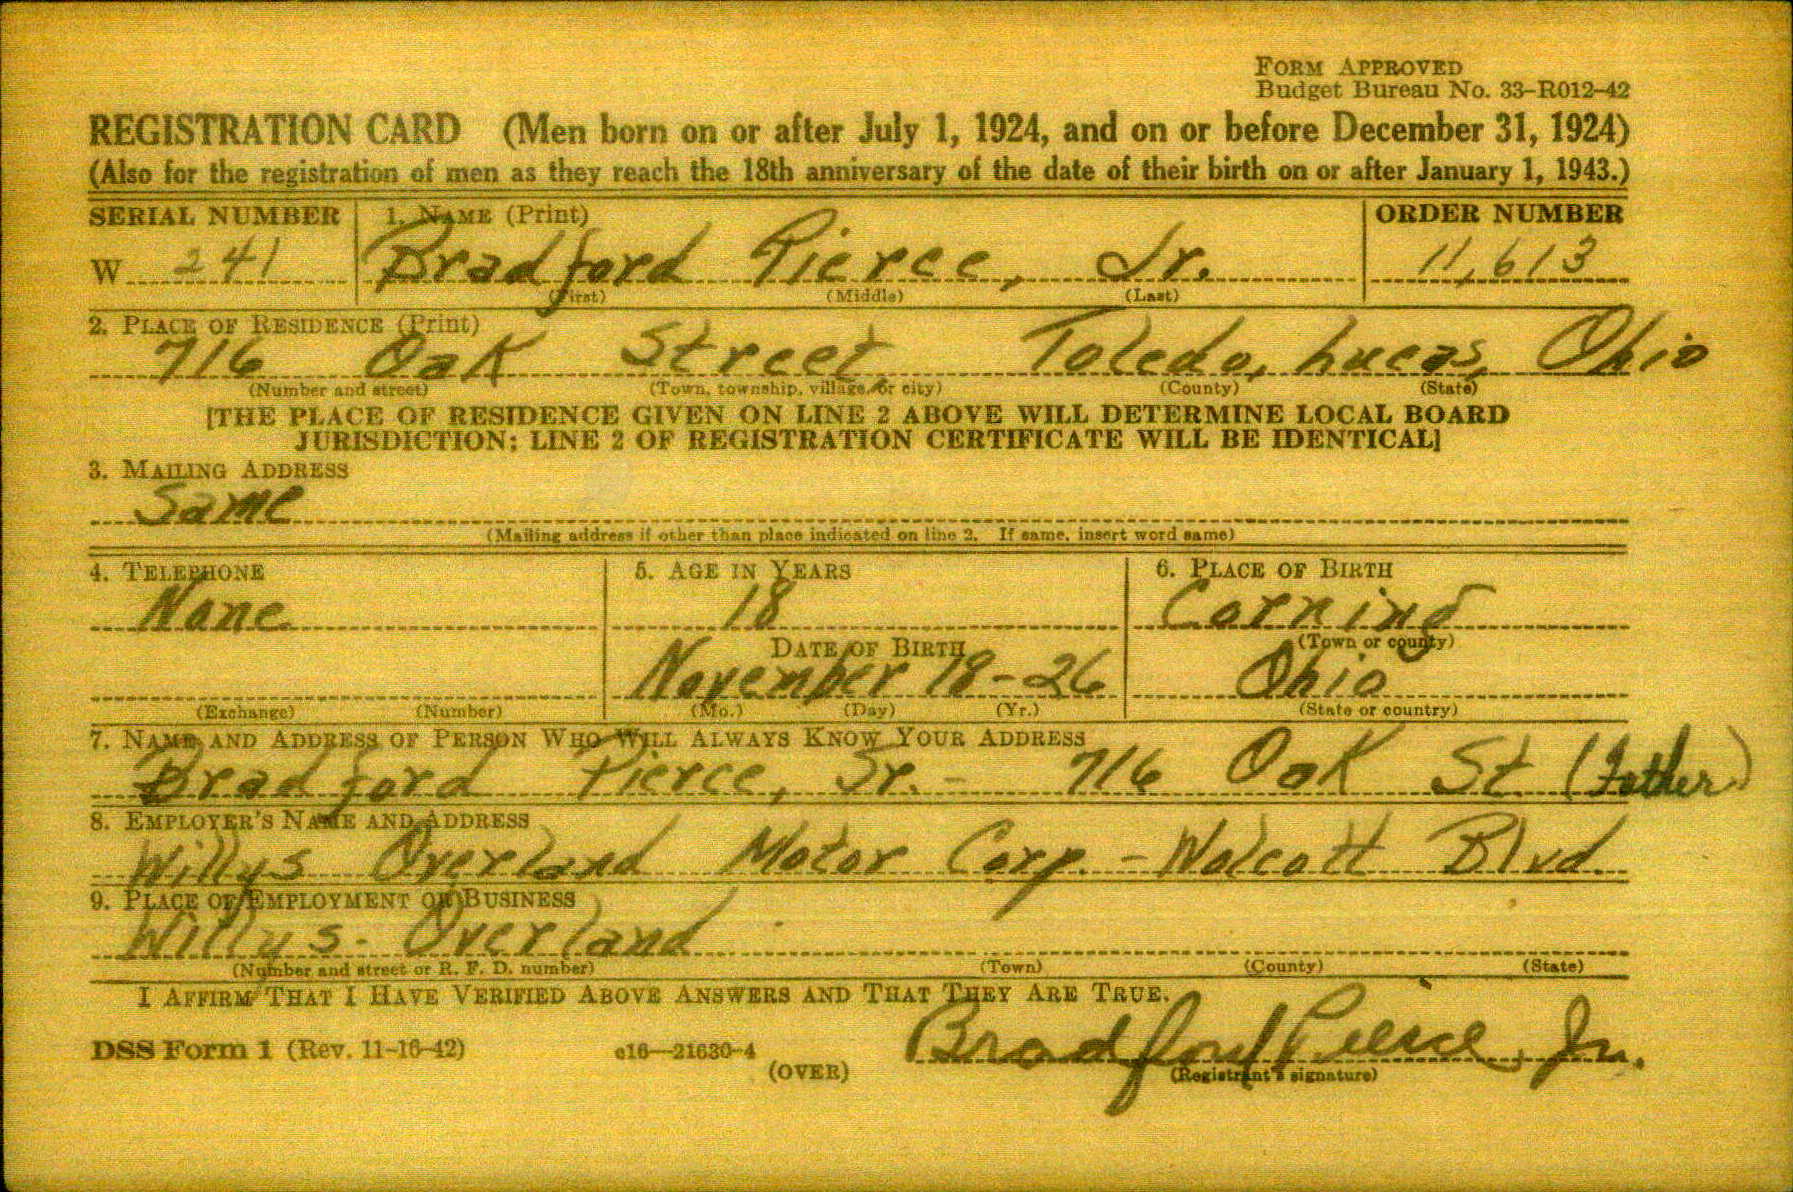 FORM APPROVED
Budget Bureau No. 33-R012-42
REGISTRATION CARD (Men born on or after July 1, 1924, and on or before December 31, 1924)
(Also for the registration of men as they reach the 18th anniversary of the date of their birth on or after January 1, 1943.)
SERIAL NUMBER 1. NAME (Print) ORDER NUMBER
W 241 Bradford Pierce, Jr. 11,613
(First) (Middle) (Last)
2. PLACE OF RESIDENCE (Print)
716 Oak Street Toledo, Lucas, Ohio
(Number and street) (Town, township, village, or city) (County) (State)
[THE PLACE OF RESIDENCE GIVEN ON LINE 2 ABOVE WILL DETERMINE LOCAL BOARD
JURISDICTION; LINE 2 OF REGISTRATION CERTIFICATE WILL BE IDENTICAL]
3. MAILING ADDRESS
Same
(Mailing address if other than place indicated on line 2. If same, insert word same)
4. TELEPHONE 5. AGE IN YEARS 6. PLACE OF BIRTH
None 18 Corning
DATE OF BIRTH (Town or county)
November 18-26 Ohio
(Exchange) (Number) (Mo.) (Day) (Yr.) (State or country)
7. NAME AND ADDRESS OF PERSON WHO WILL ALWAYS KNOW YOUR ADDRESS
Bradford Pierce, Sr. - 716 Oak St. (Father)
8. EMPLOYER'S NAME AND ADDRESS
Willys Overland Motor Corp. - Wolcott Blvd.
9. PLACE OF EMPLOYMENT OR BUSINESS
Willys-Overland
(Number and street or R. F. D. number) (Town) (County) (State)
I AFFIRM THAT I HAVE VERIFIED ABOVE ANSWERS AND THAT THEY ARE TRUE.
DSS Form 1 (Rev. 11-16-42) c16—21630-4 Bradford Pierce, Jr.
(OVER) (Registrant's signature)